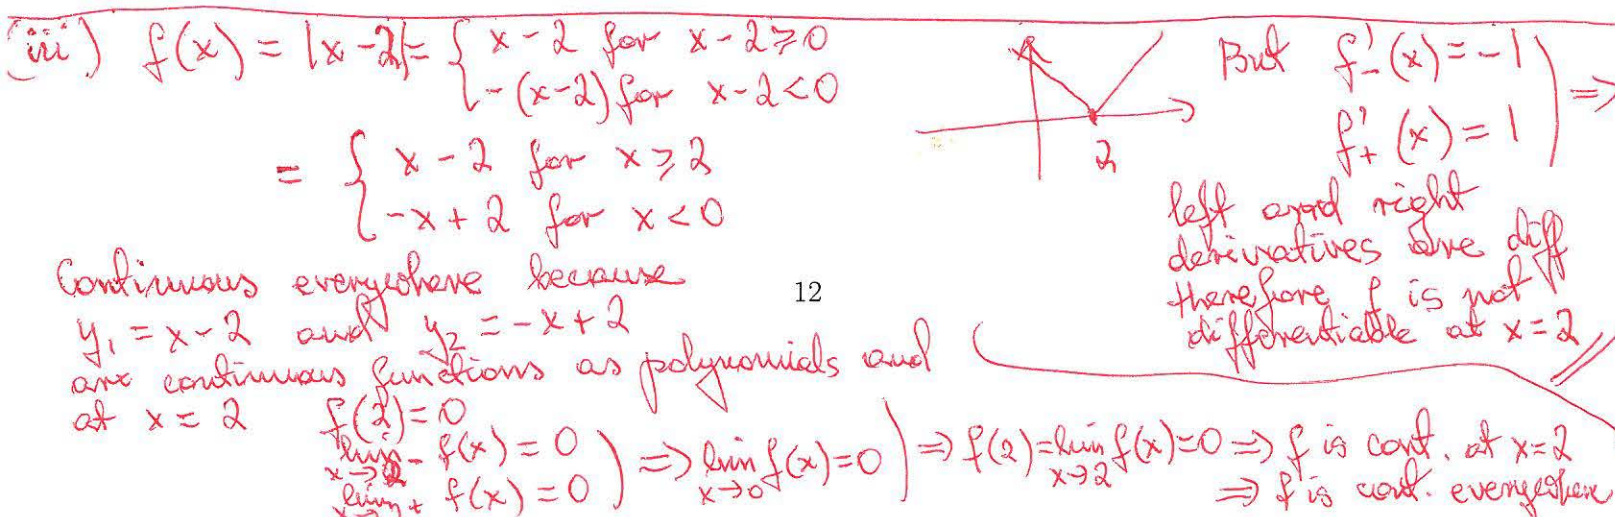 (iii) f(x) = |x-2| = { x-2 for x-2 ≥ 0
-(x-2) for x-2 < 0
= { x-2 for x ≥ 2
-x+2 for x < 0
2
But f'₋(x) = -1
f'₊(x) = 1 ) ⇒
left and right
derivatives are diff
therefore f is not
differentiable at x=2
Continuous everywhere because
y₁ = x-2 and y₂ = -x+2
are continuous functions as polynomials and
at x = 2 f(2) = 0
lim x→2⁻ f(x) = 0
lim x→2⁺ f(x) = 0 ) ⇒ lim x→0 f(x) = 0 ) ⇒ f(2) = lim x→2 f(x) = 0 ⇒ f is cont. at x=2
⇒ f is cont. everywhere
12